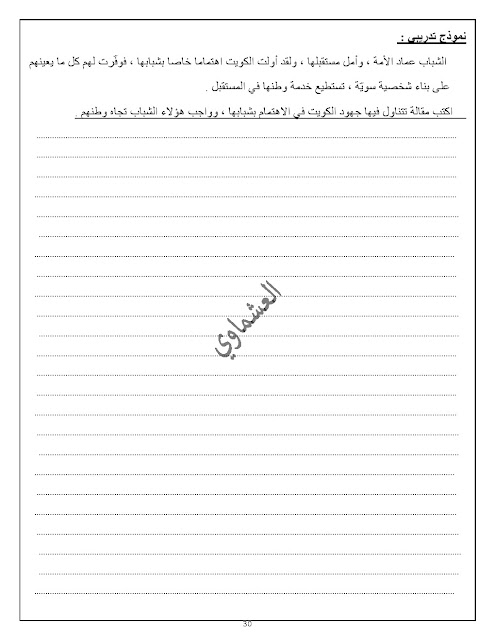 نموذج تدريبي :
الشباب عماد الأمة ، وأمل مستقبلها ، ولقد أولت الكويت اهتماما خاصا بشبابها ، فوفّرت لهم كل ما يعينهم
على بناء شخصية سويّة ، تستطيع خدمة وطنها في المستقبل .
اكتب مقالة تتناول فيها جهود الكويت في الاهتمام بشبابها ، وواجب هؤلاء الشباب تجاه وطنهم .
العشماوي
30